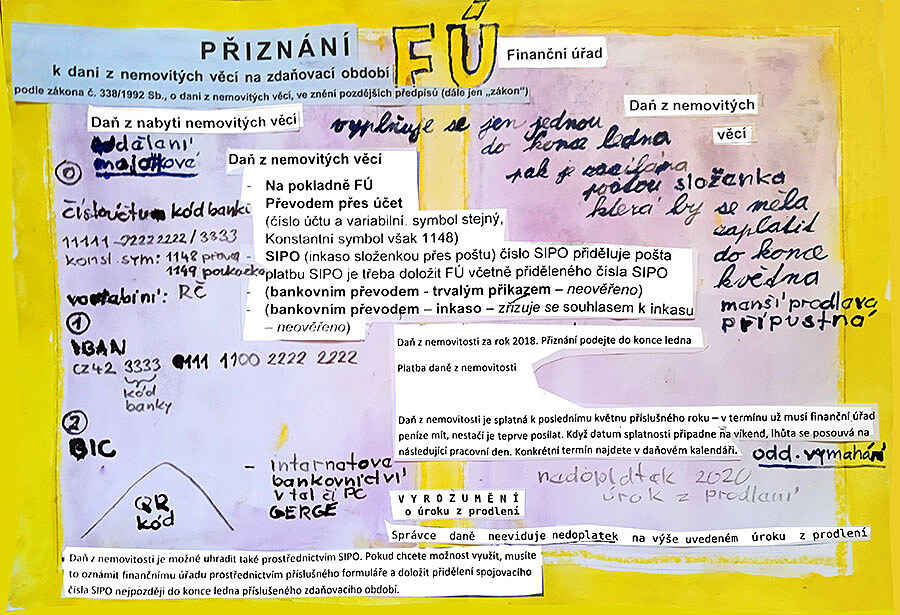 PŘIZNÁNÍ
k dani z nemovitých věcí na zdaňovací období
podle zákona č. 338/1992 Sb., o dani z nemovitých věcí, ve znění pozdějších předpisů (dále jen „zákon“)
FÚ
Finanční úřad
Daň z nabytí nemovitých věcí
majetkové
0
číslo účtu kód banky
11111-22222222/3333
konst. sym: 1148
1149
RČ
1
IBAN
CZ42 3333 0111 1100 2222 2222
kód
banky
2
BIC
QR
kód
- internatova
bankovnictví
v tal či PC
GERGE
Daň z nemovitých věcí
- Na pokladně FÚ
Převodem přes účet
(číslo účtu a variabilní. symbol stejný,
Konstantní symbol však 1148)
- SIPO (inkaso složenkou přes poštu) číslo SIPO přiděluje pošta
platbu SIPO je třeba doložit FÚ včetně přiděleného čísla SIPO
- (bankovním převodem - trvalým příkazem – neověřeno)
- (bankovním převodem – inkaso – zřizuje se souhlasem k inkasu
– neověřeno)
Daň z nemovitých
věcí
vyplňuje se jen jednou
do konce ledna
pak je zasílána
poštou složenka
která by se měla
zaplatit
do konce
května
manší prodlava
přípustná
Daň z nemovitosti za rok 2018. Přiznání podejte do konce ledna
Platba daně z nemovitosti
Daň z nemovitosti je splatná k poslednímu květnu příslušného roku – v termínu už musí finanční úřad
peníze mít, nestačí je teprve posílat. Když datum splatnosti připadne na víkend, lhůta se posouvá na
následující pracovní den. Konkrétní termín najdete v daňovém kalendáři.
odd. vymahání
nadopldtak 2020
úrok z prodlaní
VYROZUMĚNÍ
o úroku z prodlení
Správce daně neeviduje nedoplatek na výše uvedeném úroku z prodlení
Daň z nemovitosti je možné uhradit také prostřednictvím SIPO. Pokud chcete možnost využít, musíte
to oznámit finančnímu úřadu prostřednictvím příslušného formuláře a doložit přidělení spojovacího
čísla SIPO nejpozději do konce ledna příslušeného zdaňovacího období.